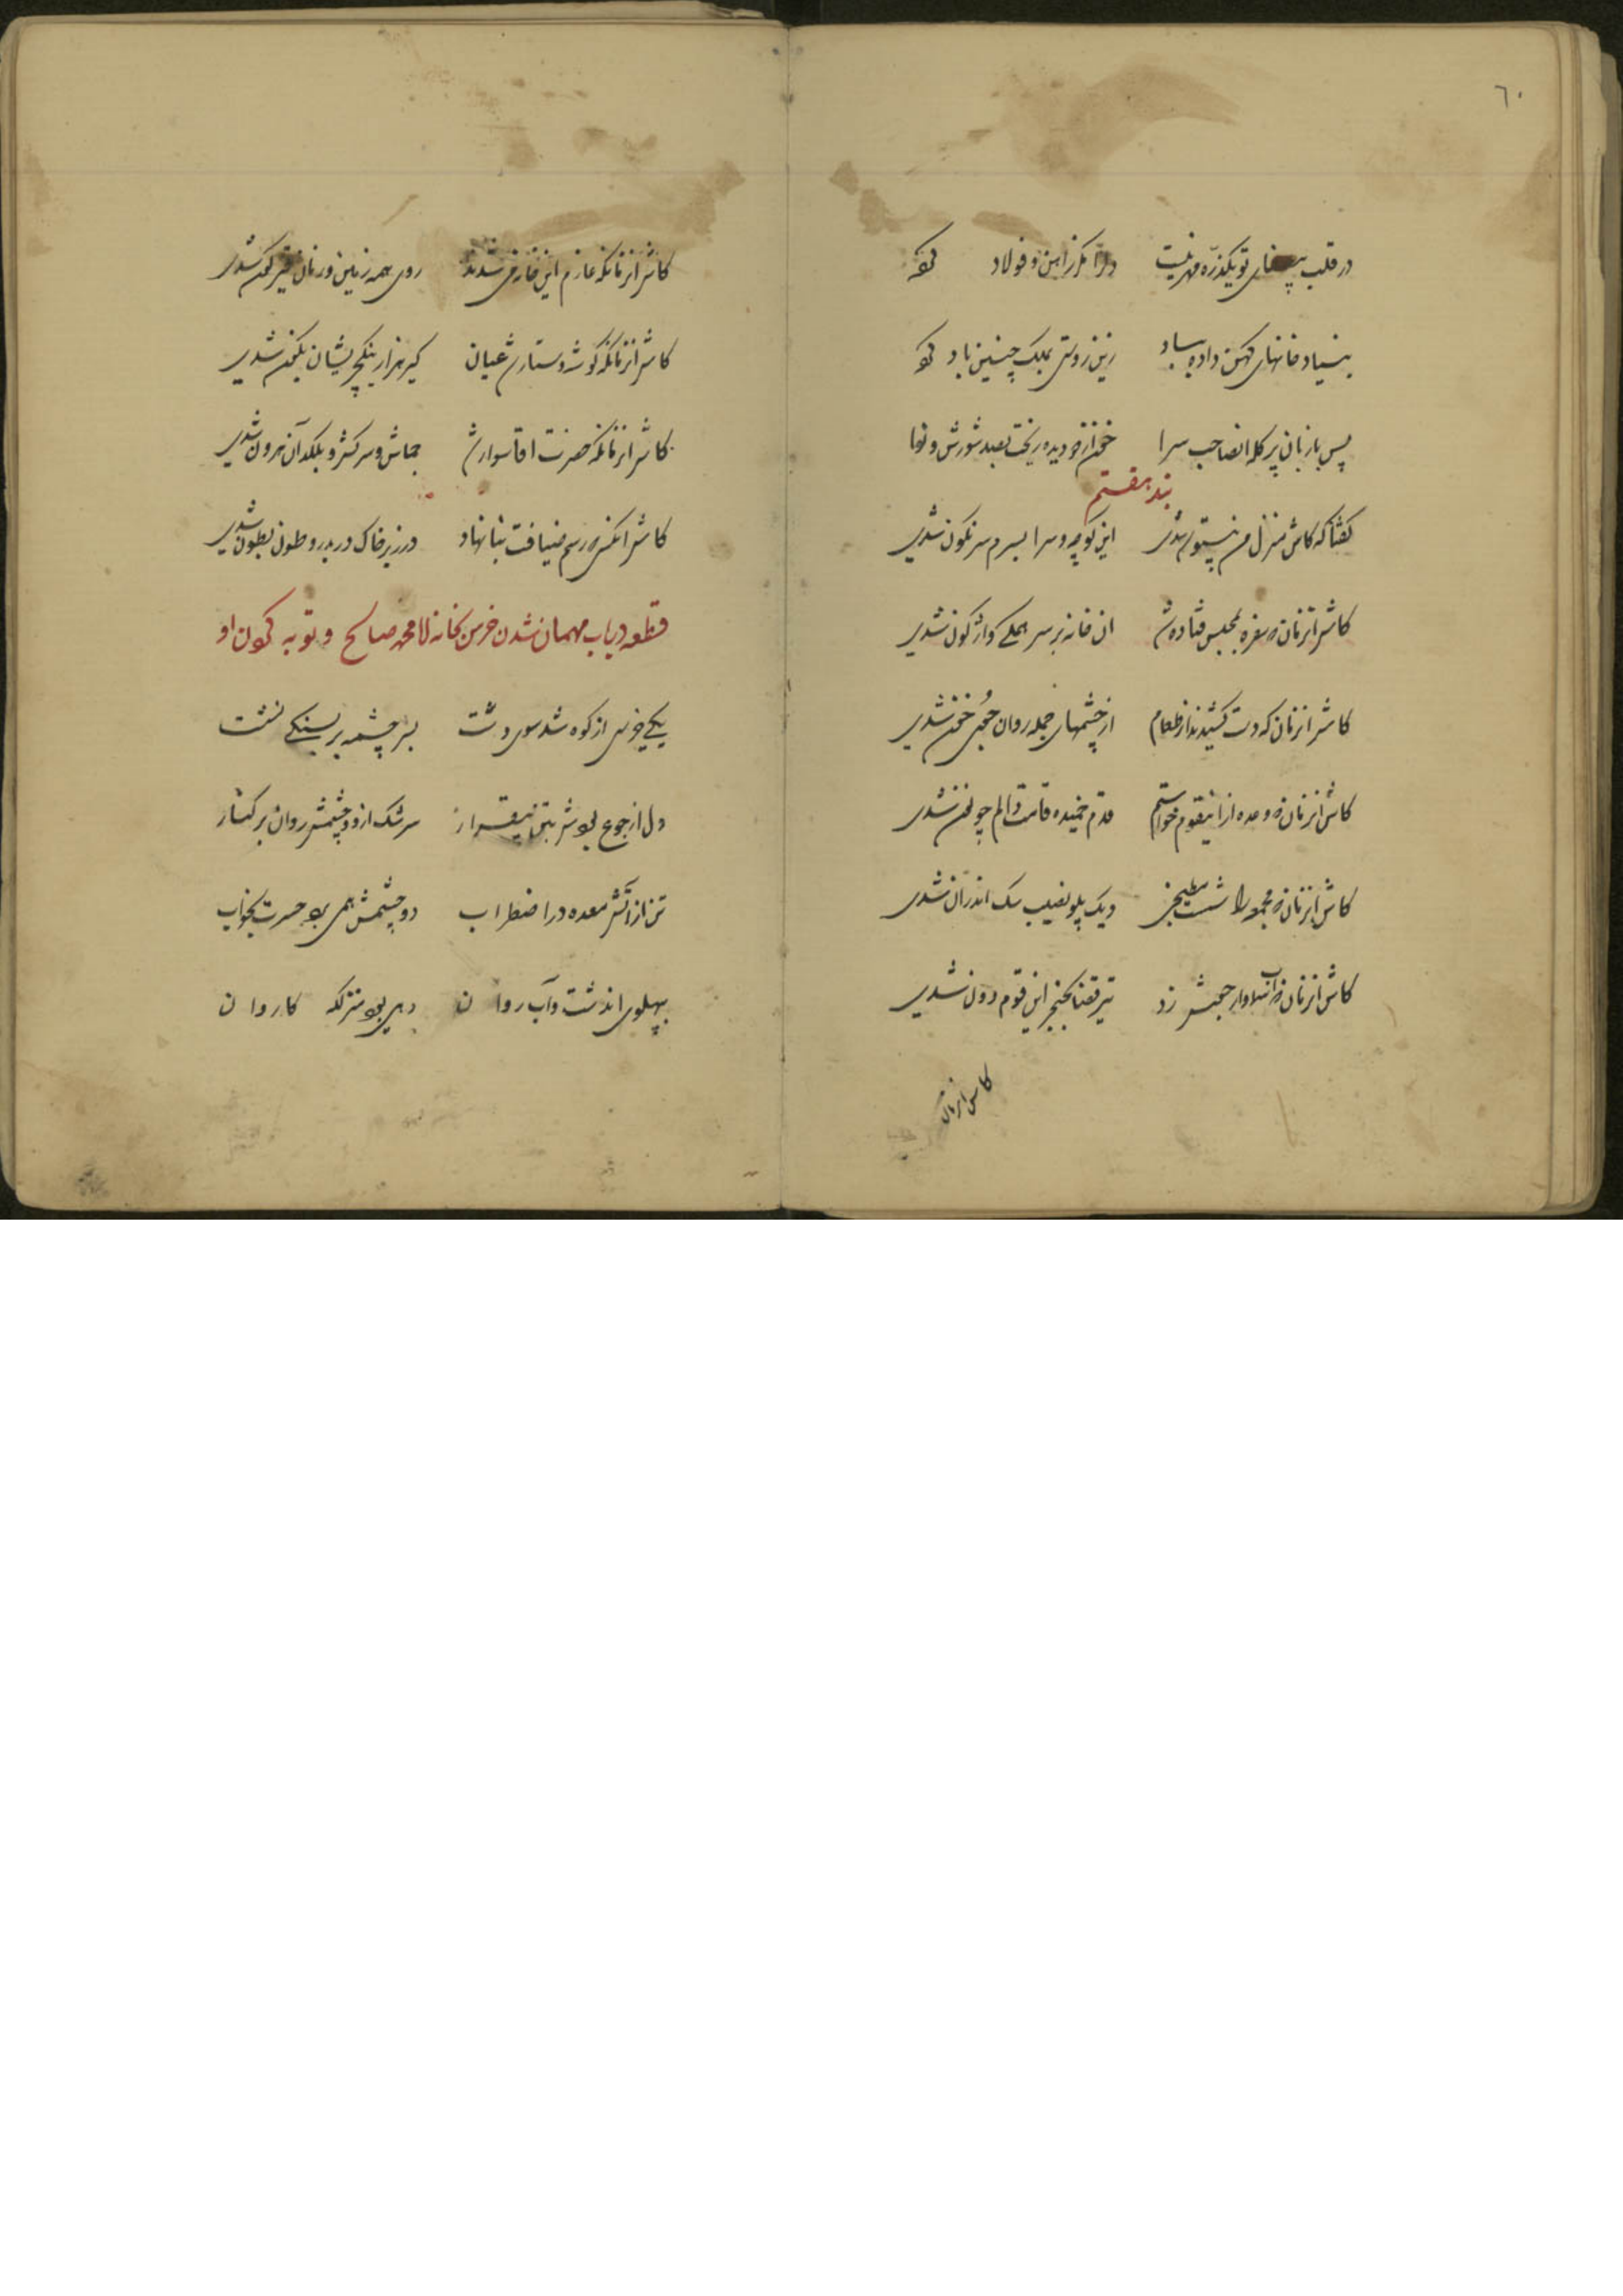 ٦٠
در قلب بیصفای تو یکذره مهر نیست دل را مگر ز آهن و فولاد کرده
بنیاد خانهای کهن داده بباد زین زوستی بملک چنین باد کرده
پس با زبان پر گله انصاحب سرا خون از دو دیده ریخت بصد شورش و نوا
بند هفتم
گفتا که کاش منزل من بیستون شدی این کوچه و سرا بسرم سرنگون شدی
کاش انزمان که سفره بمجلس فتاده شد ان خانه بر سر همگی واژگون شدی
کاش انزمان که دست کشیدند از طعام از چشمهای جمله روان جوی خون شدی
کاش انزمان که وعده از اینقوم خواستم قدم خمیده قامت دالم چو نون شدی
کاش انزمان که مجمعه را شست دیک پلو نصیب سک اندران شدی
کاش انزمان که زد تیر قضا بکنج این قوم دون شدی
کاش انزمان
کاش انزمانکه عازم این خانه می شدند روی همه زمین و زمان قیرگون شدی
کاش انزمانکه گوشه دستارش عیان کیر هزار ینکچریشان بکون شدی
کاش انزمانکه حضرت اقا سوار شد چماش و سرکش و بلکد آن حرون شدی
کاش انکسی که رسم ضیافت بنا نهاد در زیر خاک دربدر و طون بطون شدی
قطعه در باب مهمان شدن خرس بخانه ملا محمد صالح و توبه کردن او
یکی خرس از کوه شد سوی دشت بسر چشمه بر سنگی نشست
دل از جوع بودش بتن بیقرار سرشک از دو چشمش روان بر کنار
تن از آتش معده در اضطراب دو چشمش همی بود حسرت بخواب
بپهلوی اندشت و آب روان دهی بود منزلگه کاروان